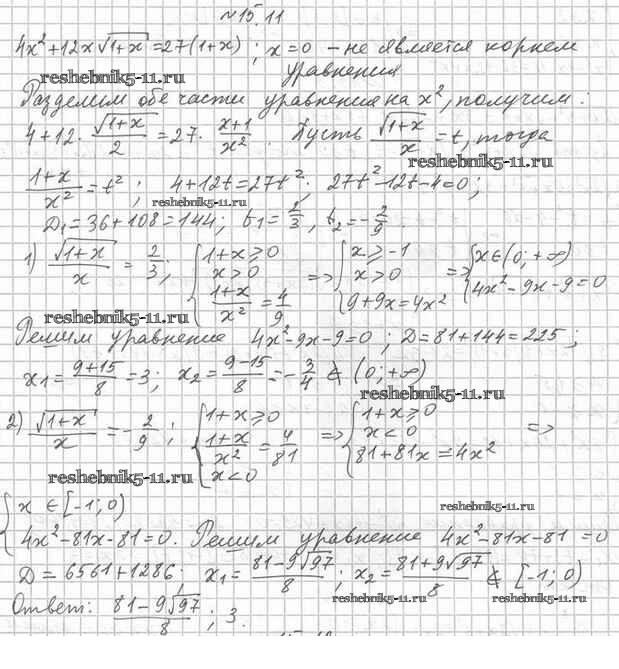 №15.11
4x²+12x√(1+x)=27(1+x) ; x=0 – не является корнем
reshebnik5-11.ru уравнения
Разделим обе части уравнения на x², получим:
4+12·√(1+x)/2=27·(x+1)/x². Пусть √(1+x)/x=t, тогда
reshebnik5-11.ru
(1+x)/x²=t² ; 4+12t=27t²; 27t²-12t-4=0;
reshebnik5-11.ru
D₁=36+108=144; t₁=2/3, t₂=-2/9.
1) √(1+x)/x=2/3; {1+x≥0 x>0 (1+x)/x²=4/9 => {x≥-1 x>0 9+9x=4x² => {x∈(0;+∞) 4x²-9x-9=0
reshebnik5-11.ru
Решим уравнение 4x²-9x-9=0 ; D=81+144=225;
x₁=(9+15)/8=3; x₂=(9-15)/8=-3/4 ∉ (0;+∞)
reshebnik5-11.ru
2) √(1+x)/x=-2/9 ; {1+x≥0 (1+x)/x²=4/81 x<0 => {1+x≥0 x<0 81+81x=4x² =>
reshebnik5-11.ru
{x∈[-1;0)
reshebnik5-11.ru
4x²-81x-81=0. Решим уравнение 4x²-81x-81=0
D=6561+1286; x₁=(81-9√97)/8; x₂=(81+9√97)/8 ∉ [-1;0)
reshebnik5-11.ru reshebnik5-11.ru
Ответ: (81-9√97)/8; 3.